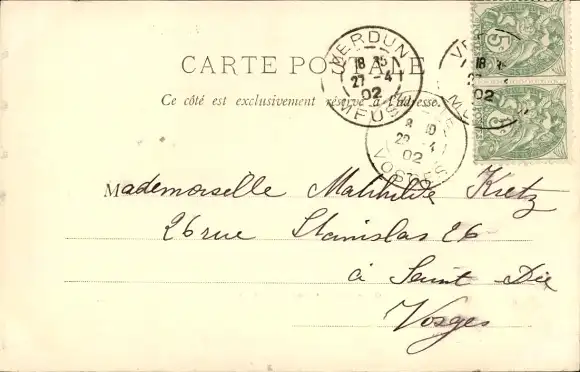 CARTE POSTALE
Ce côté est exclusivement réservé à l'adresse.
VERDUN
18 35
27 - 4
02
MEUSE
VE
18 3
27
02
M
5
5
8 10
29 - 4
02
VOSGES
Mademoiselle Mathilde Kretz
26 rue Stanislas 26
à Saint Dié
Vosges